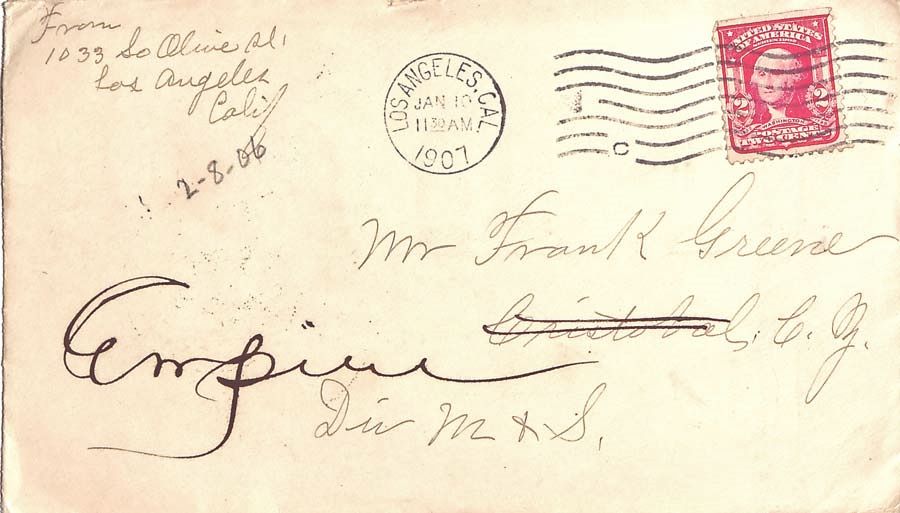 From
1033 So Olive St.
Los Angeles
Calif
2-8-06
LOS ANGELES, CAL.
JAN 10
11 30 AM
1907
C
UNITED STATES
OF AMERICA
SERIES 1902
2 2
WASHINGTON
POSTAGE
TWO CENTS
Mr Frank Greene
Cristobal, C. Z.
Empire
Div M & S.